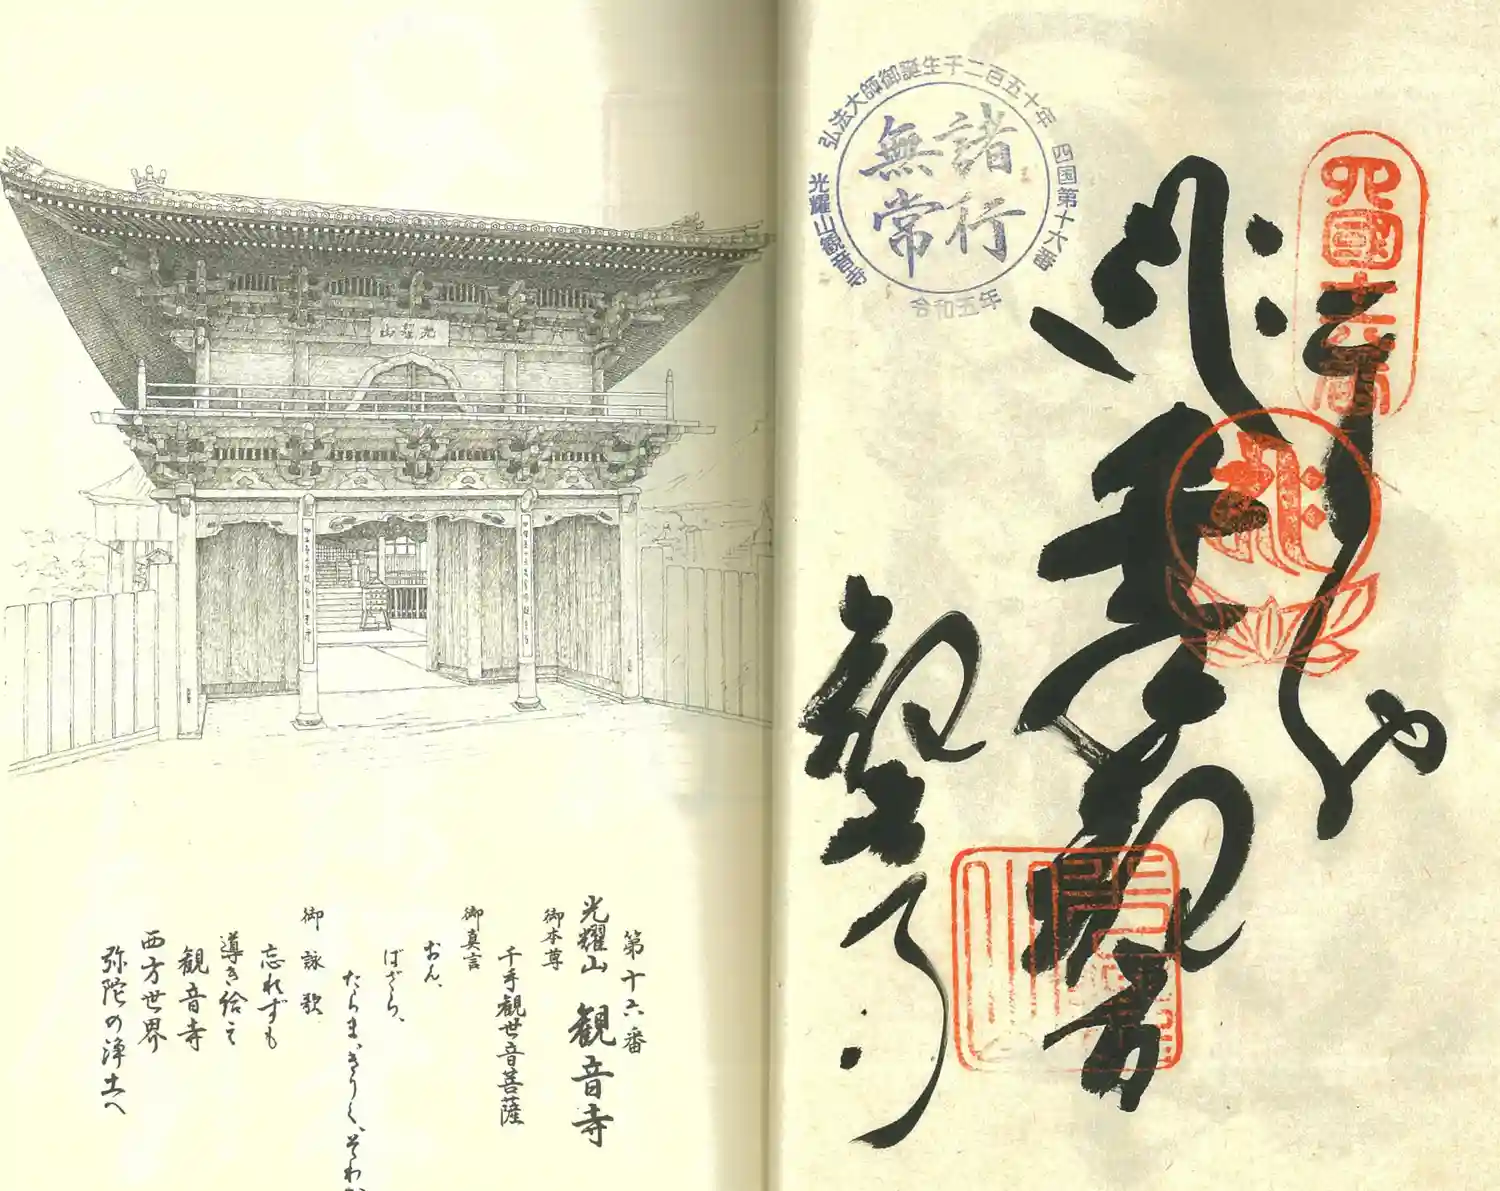 弘法大師御誕生千二百五十年
四国第十六番
光耀山観音寺
諸行
無常
令和五年
四國十六番
光耀山
第十六番
光耀山 観音寺
御本尊
千手観世音菩薩
御真言
おん、
ばざら、
たらま、きりく、そわ
御詠歌
忘れずも
導き給え
観音寺
西方世界
弥陀の浄土へ
千手観音
観音寺